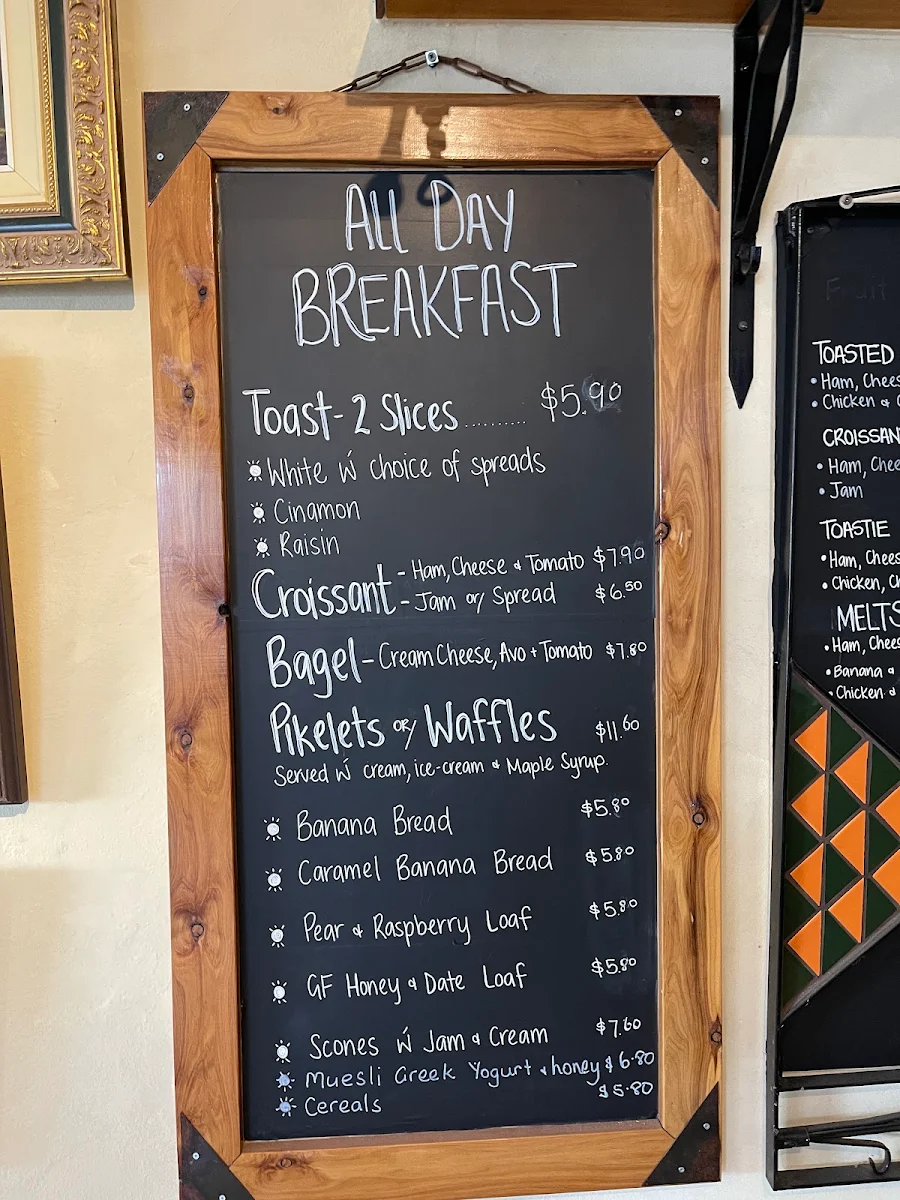 ALL DAY
BREAKFAST
Toast - 2 Slices .......... $5.90
White w/ choice of spreads
Cinamon
Raisin
Croissant - Ham, Cheese & Tomato $7.90
- Jam or/ Spread $6.50
Bagel - Cream Cheese, Avo + Tomato $7.80
Pikelets or/ Waffles $11.60
Served w/ cream, ice-cream & Maple Syrup.
Banana Bread $5.80
Caramel Banana Bread $5.80
Pear & Raspberry Loaf $5.80
GF Honey & Date Loaf $5.80
Scones w/ Jam & Cream $7.60
Muesli Greek Yogurt & honey $6.80
Cereals $5.80
Fruit
TOASTED
• Ham, Chees
• Chicken &
CROISSAN
• Ham, Chee
• Jam
TOASTIE
• Ham, Chees
• Chicken, Ch
MELTS
• Ham, Chees
• Banana &
• Chicken &